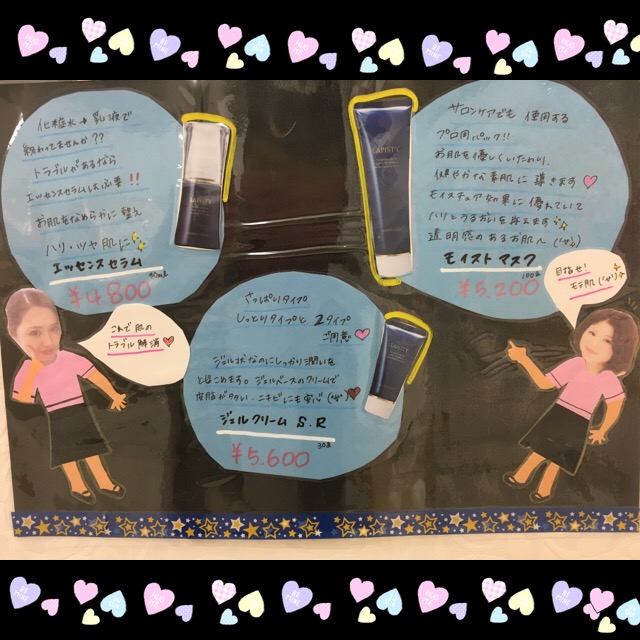 化粧水→乳液で
終わってませんか??
トラブルがあるなら
エッセンスセラムは必要!!
お肌をなめらかに整え
ハリ・ツヤ肌に
エッセンスセラム
¥4.800
LAPISTY
サロンケアでも 使用する
プロ用パック!!
お肌を優しくいたわり、
健やかな素肌に 導きます
モイスチュア効果に 優れていて
ハリとうるおいを与えます
透明感のあるお肌へ
モイスト マスク
100g
¥5.200
LAPISTY
これで 肌の
トラブル 解消
目指せ!
モテ肌
さっぱりタイプ
しっとりタイプと 2タイプ
ご用意
ジェル状なのにしっかり潤いを
とじこめます。ジェルベースのクリームで
ニキビにも
ジェルクリーム S.R
30g
¥5.600
LAPISTY